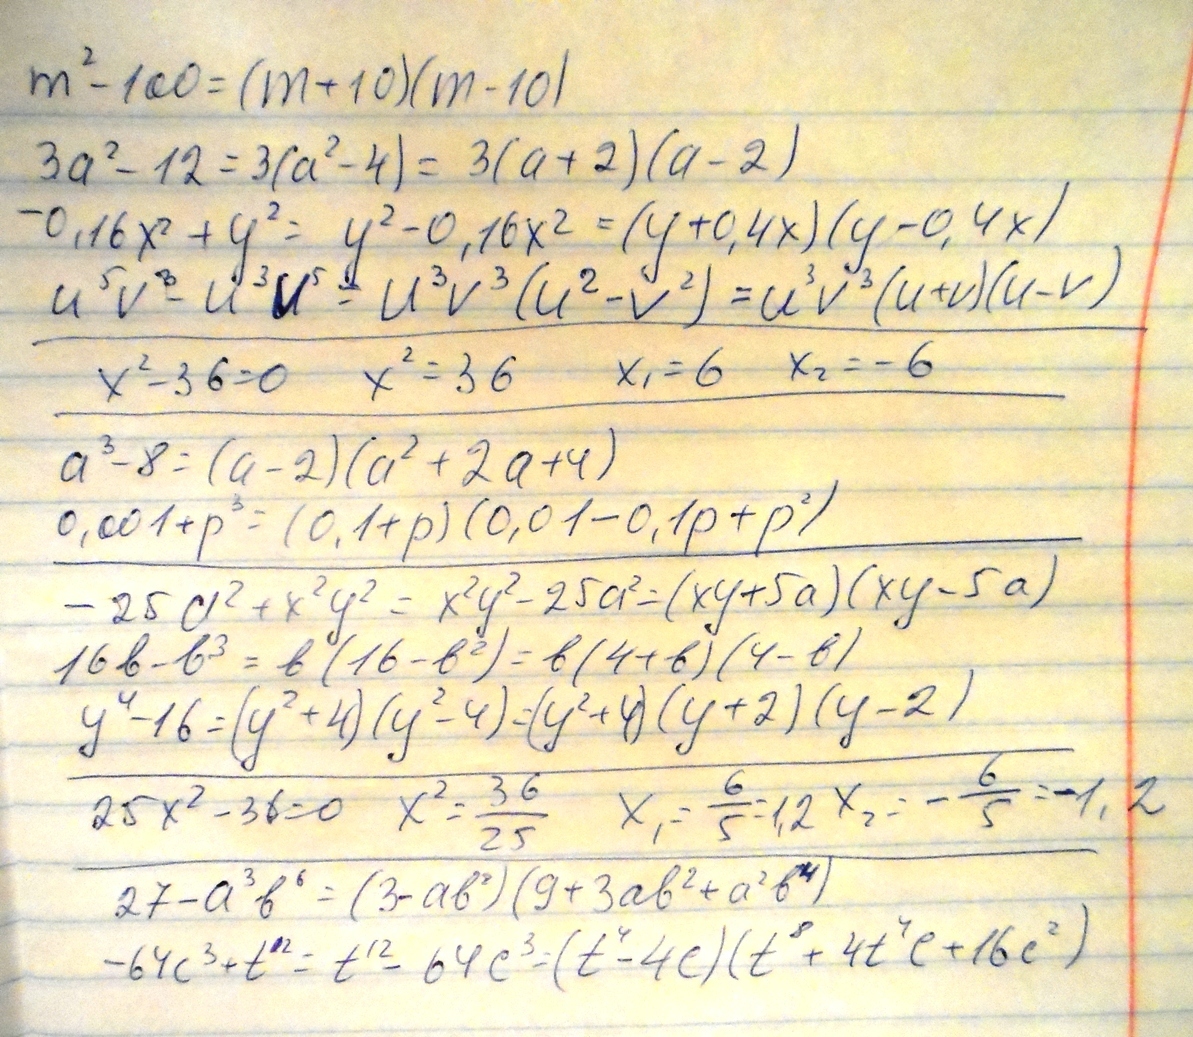 m² - 100 = (m + 10)(m - 10)
3a² - 12 = 3(a² - 4) = 3(a + 2)(a - 2)
-0,16x² + y² = y² - 0,16x² = (y + 0,4x)(y - 0,4x)
u⁵v³ - u³v⁵ = u³v³(u² - v²) = u³v³(u+v)(u-v)
x² - 36 = 0 x² = 36 x₁ = 6 x₂ = -6
a³ - 8 = (a - 2)(a² + 2a + 4)
0,001 + p³ = (0,1 + p)(0,01 - 0,1p + p²)
-25a² + x²y² = x²y² - 25a² = (xy + 5a)(xy - 5a)
16в - в³ = в(16 - в²) = в(4 + в)(4 - в)
y⁴ - 16 = (y² + 4)(y² - 4) = (y² + 4)(y + 2)(y - 2)
25x² - 36 = 0 x² = 36/25 x₁ = 6/5 = 1,2 x₂ = -6/5 = -1,2
27 - a³в⁶ = (3 - aв²)(9 + 3aв² + a²в⁴)
-64c³ + t¹² = t¹² - 64c³ = (t⁴ - 4c)(t⁸ + 4t⁴c + 16c²)